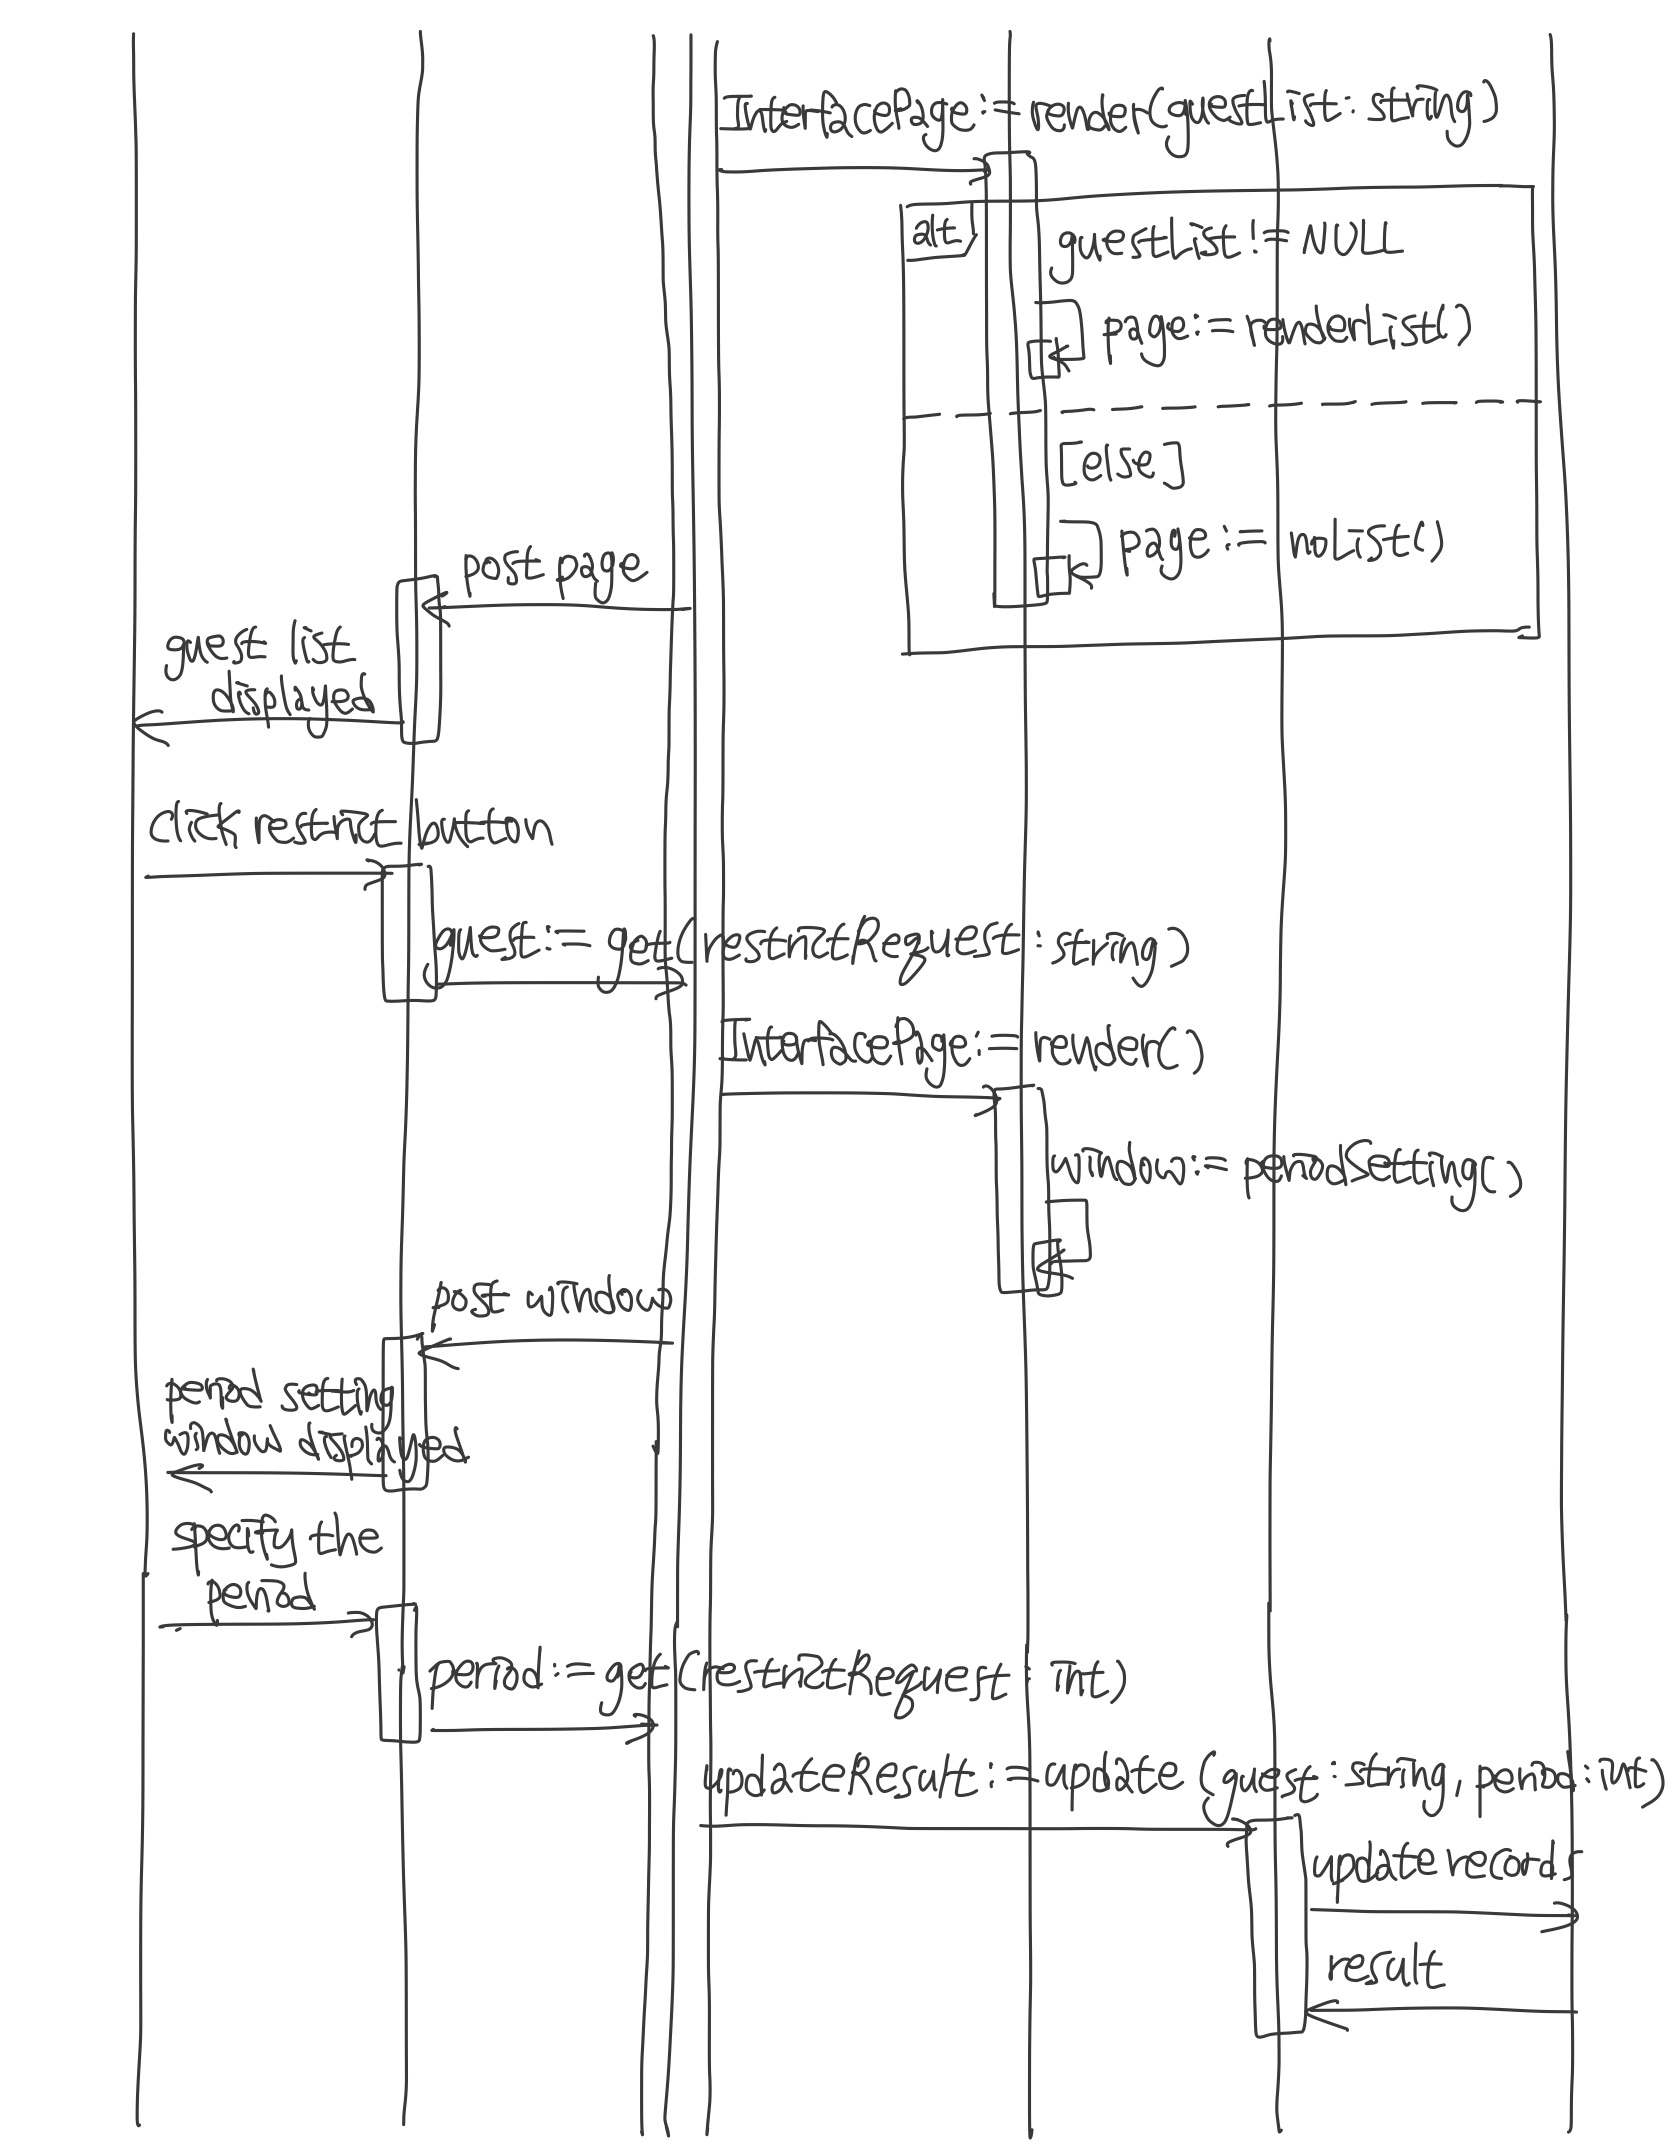 InterfacePage:=render(guestList: string)
alt
guestList != NULL
page:= renderList()
[else]
page:= noList()
post page
guest list
displayed
click restrict button
guest:= get(restrictRequest: string)
InterfacePage:= render()
window:= periodSetting()
post window
period setting
window displayed
specify the
period
period:= get(restrictRequest: int)
updateResult:= update (guest: string, period: int)
update records
result